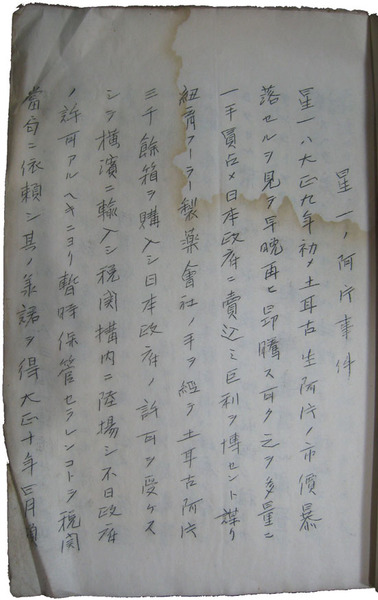 星一ノ阿片事件
星一ハ大正九年初メ土耳古生阿片ノ市價暴
落セルヲ見テ早晩再ヒ昂騰ス可ク之ヲ多量ニ
一手買占メ日本政府ニ賣込ミ巨利ヲ博セント謀リ
紐育フーラー製薬會社ノ手ヲ経テ土耳古阿片
三千餘箱ヲ購入シ日本政府ノ許可ヲ受ケス
シテ横濱ニ輸入シ税関構内ニ陸揚シ不日政府
ノ許可アルヘキニヨリ暫時保管セラレンコトヲ税関
當局ニ依頼シ其ノ承諾ヲ得大正十年三月頃